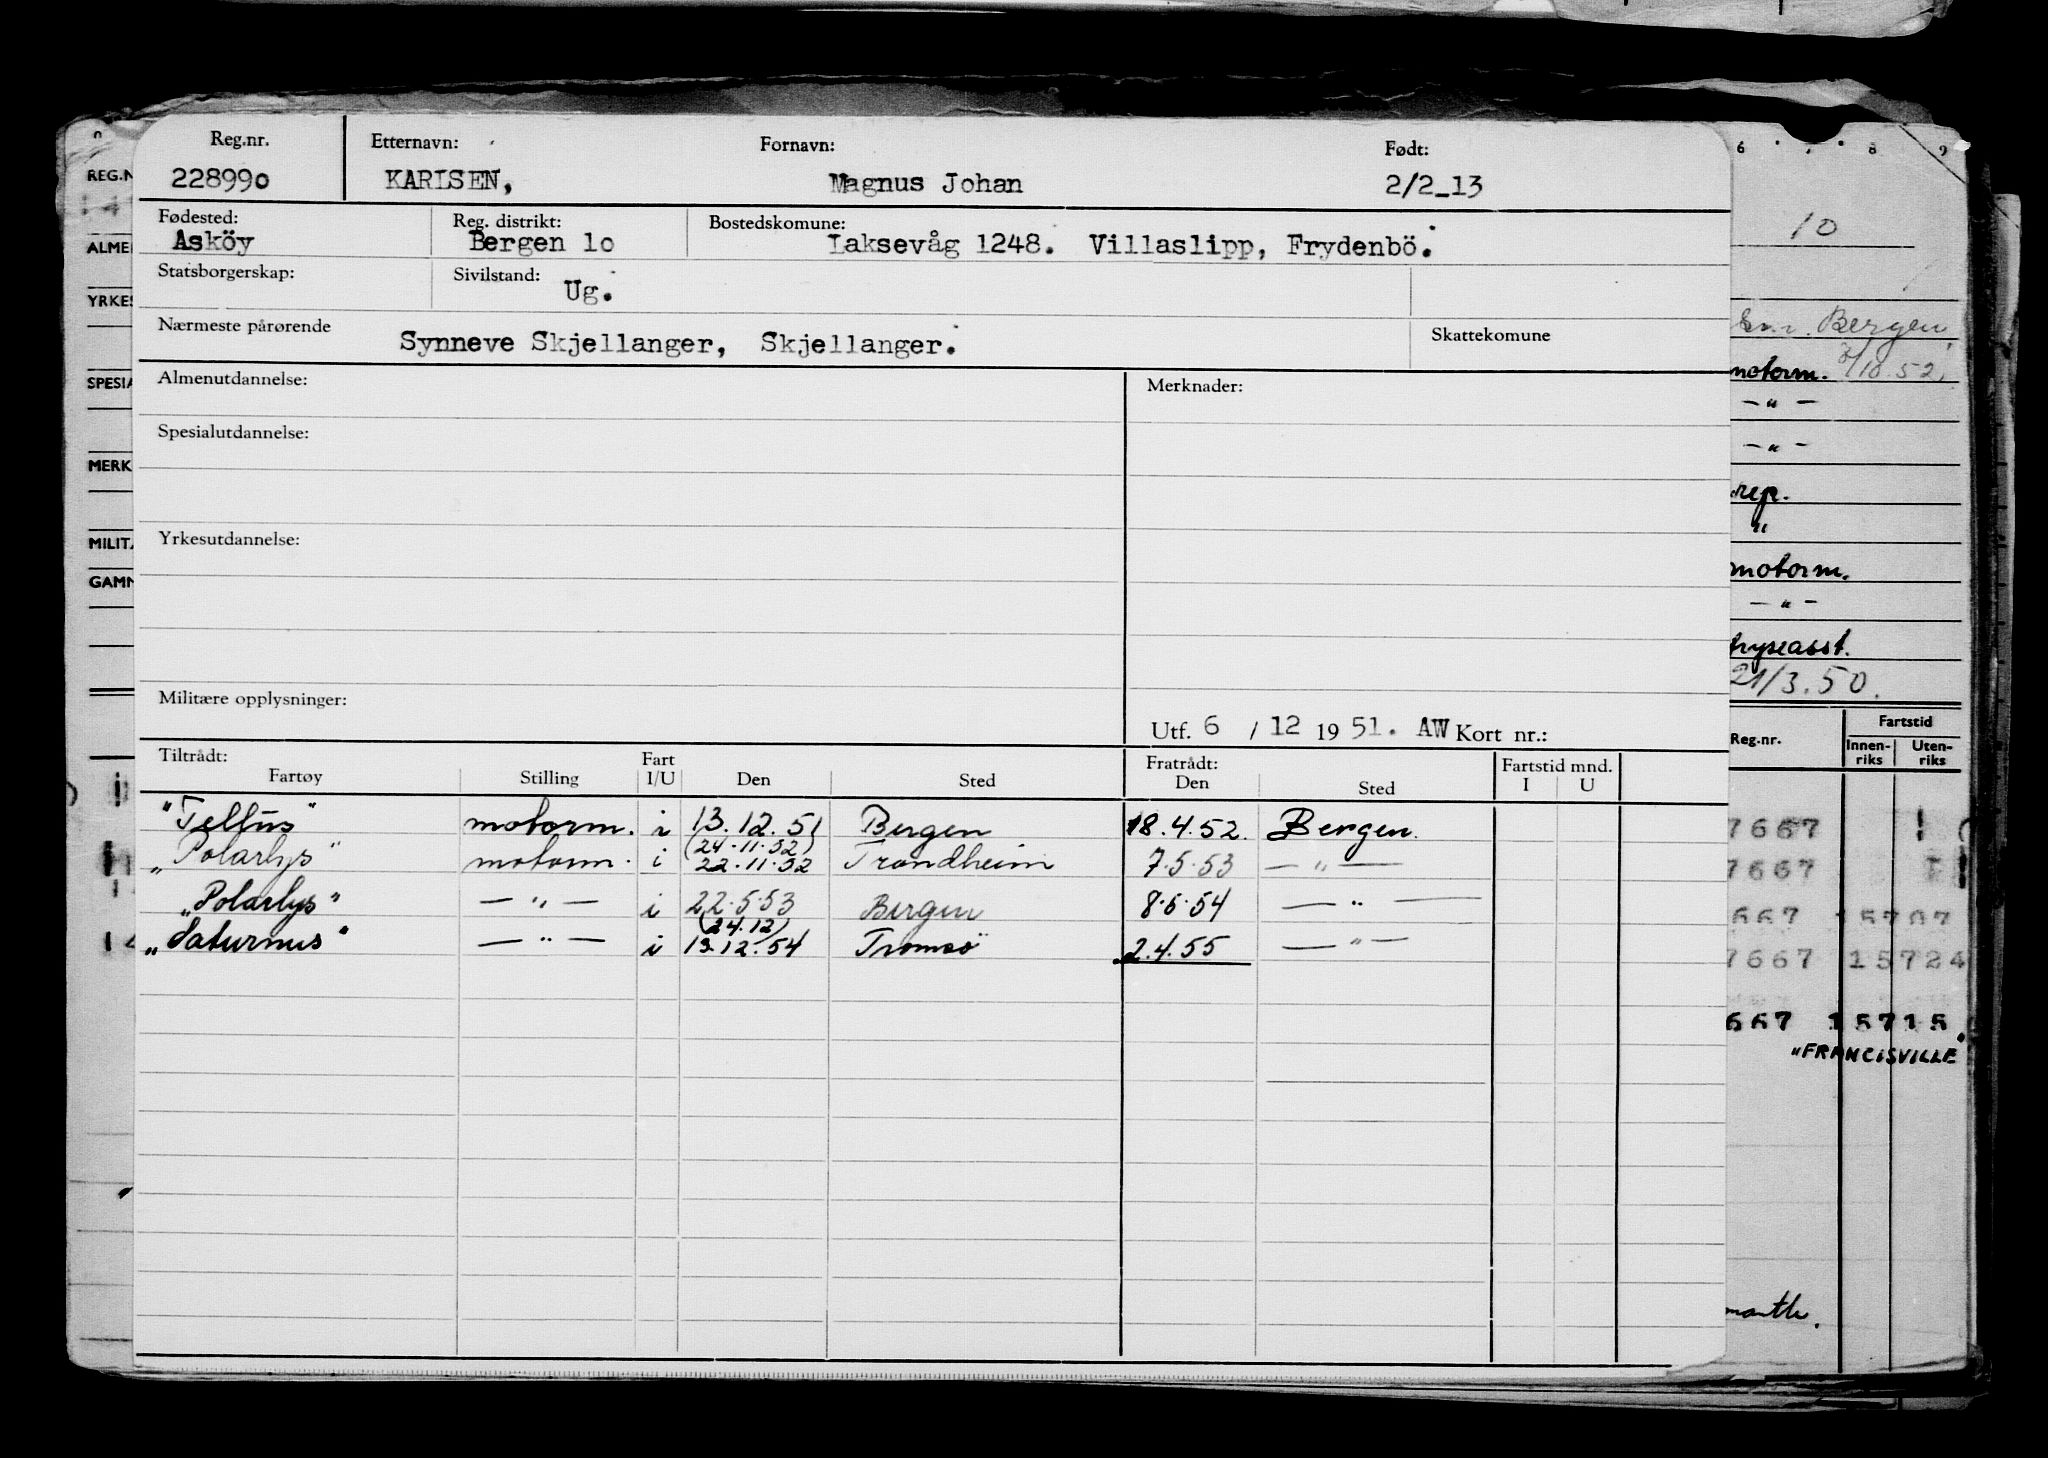 Reg.nr. Etternavn: Fornavn: Født:
228990 KARLSEN, Magnus Johan 2/2_13
Fødested: Reg. distrikt: Bostedskomune:
Asköy Bergen lo Laksevåg 1248. Villaslipp, Frydenbö.
Statsborgerskap: Sivilstand:
Ug.
Nærmeste pårørende Skattekomune
Synneve Skjellanger, Skjellanger.
Almenutdannelse: Merknader:
Spesialutdannelse:
Yrkesutdannelse:
Militære opplysninger:
Utf. 6 / 12 19 51. AW Kort nr.:
Tiltrådt: Fart Fratrådt: Fartstid mnd.
Fartøy Stilling I/U Den Sted Den Sted I U
"Tellus" motorm. i 13.12.51 Bergen 18.4.52. Bergen.
(24.11.52)
"Polarlys" motorm. i 22.11.52 Trondheim 7.5.53 — " —
"Polarlys" — " — i 22.5.53 Bergen 8.6.54 — " —
(24.12)
"Saturnus" — " — i 13.12.54 Tromsö 2.4.55 — " —
REG.N
ALMEN
YRKES
SPESIA
MERK
MILITÆ
GAMM
6 7 8 9
10
Bergen
motorm. 3/10.52.
— " —
— " —
rep.
"
motorm.
— " —
hryseasst.
21/3.50.
Reg.nr. Fartstid
Innen-riks Uten-riks
7667
7667
667 15707
7667 15724
667 15715
"FRANCISVILLE